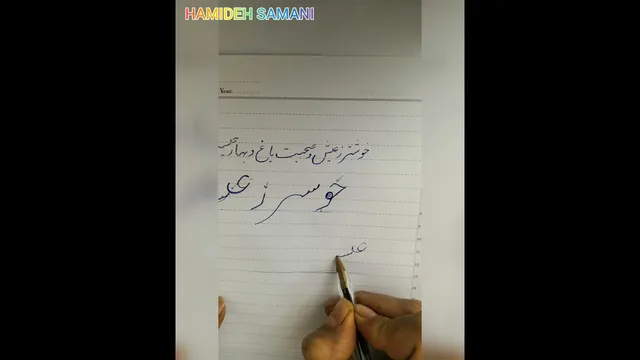 HAMIDEH SAMANI
Year
خوشتر ز عیش و صحبت باغ و بهار
خوشتر ز